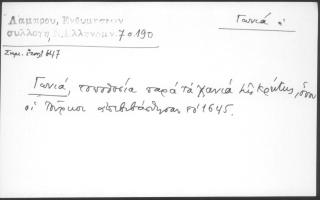 Λάμπρου, Ενθυμήσεων
συλλογή, Ν.Ελληνομν. 7ος 190
Γωνιά ἡ
Γωνιά, τοποθεσία παρά τά Χανιά τῆς Κρήτης, ὅπου
οἱ Τοῦρκοι ἀπεβιβάσθησαν τό 1645.